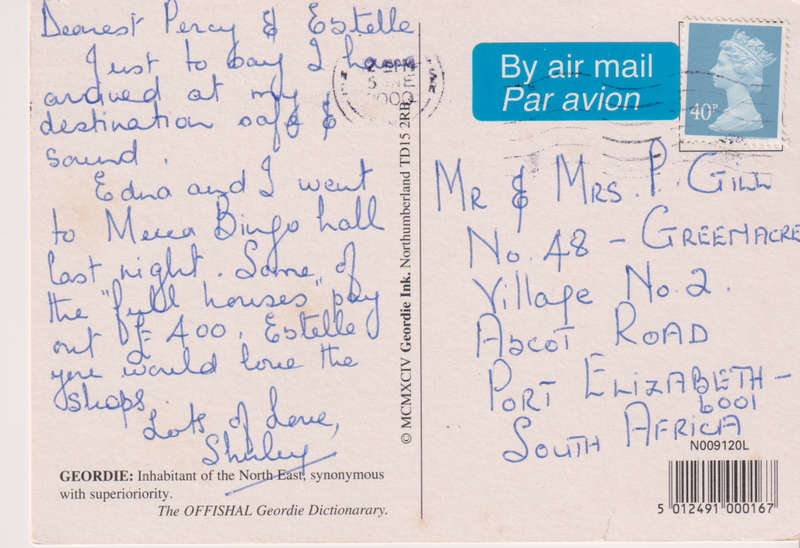 Dearest Percy & Estelle
Just to say I have
arrived at my
destination safe &
sound.
Edna and I went
to Mecca Bingo hall
last night. Some of
the "full houses" pay
out £400. Estelle
you would love the
shops.
Lots of Love,
Shirley
GEORDIE: Inhabitant of the North East, synonymous
with superioriority.
The OFFISHAL Geordie Dictionarary.
© MCMXCIV Geordie Ink. Northumberland TD15 2RB
By air mail
Par avion
40P
Mr & Mrs. P. Gill
No. 48 - Greenacre
Village No. 2.
Ascot Road
Port Elizabeth -
6001
South Africa
N009120L
5 012491 000167